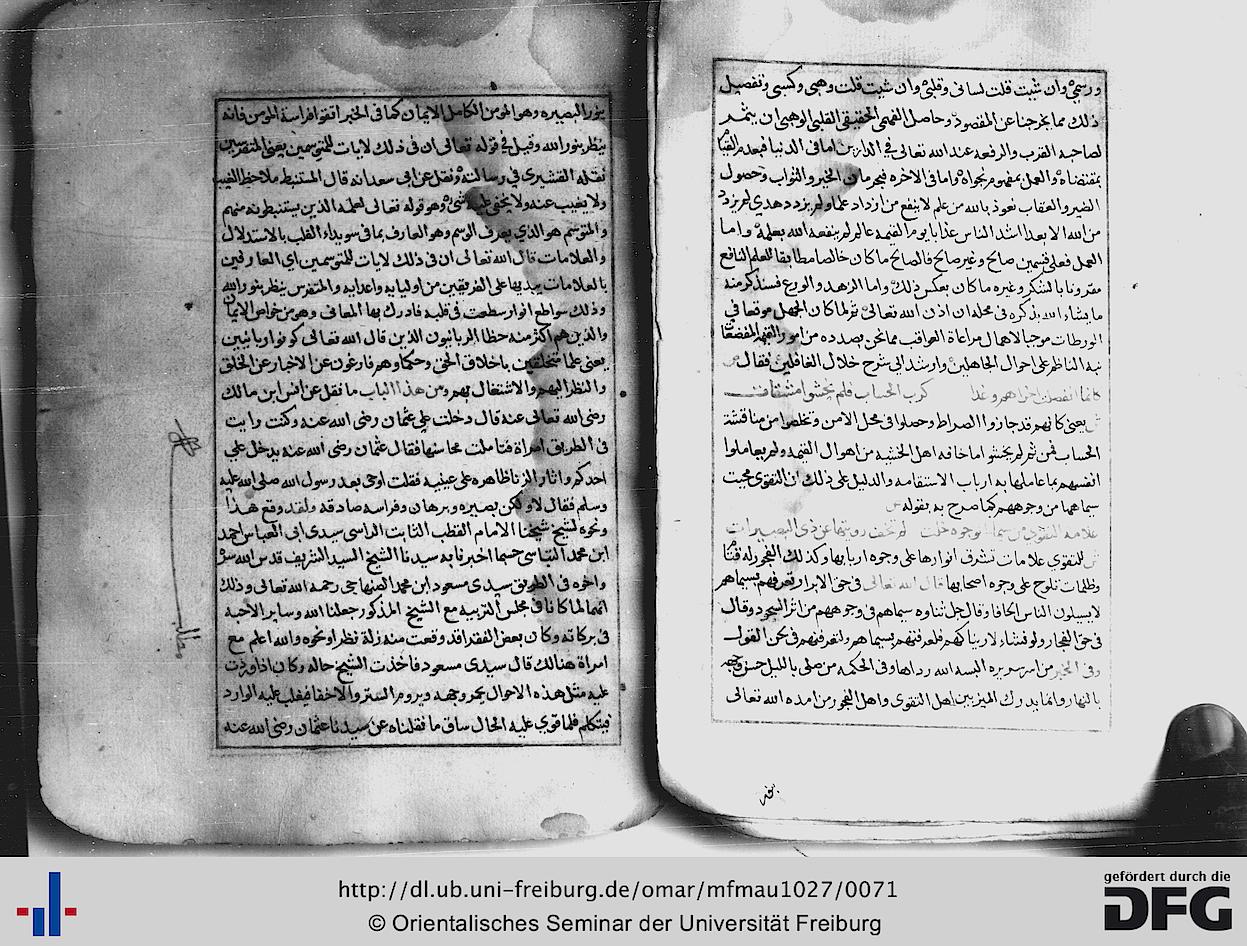 ورسمي وان شيت قلت لساني وقلبي وان شيت قلت وهبي وكسبي وتفصيل
ذلك مما يخرجنا عن المقصود وحاصل الفهمي الحقيقي القلبي الوهبي ان يثمر
لصاحبه القرب والرفعه عند الله تعالى في الدارين اما في الدنيا فبعد
بمقتضاه والعمل بمفهوم نجواه واما في الاخره فبجرمان الخير والثواب وحصول
الضير والعقاب نعوذ بالله من علم لا ينفع من ازداد علما ولم يزدد هدي لم يزدد
من الله الا بعدا اشد الناس عذابا يوم القيمه عالم لم ينفعه الله بعلمه واما
العمل فعلى قسمين صالح وغير صالح فالصالح ما كان خالصا مطابقا للعلم النافع
مقرونا بالشكر وغيره ما كان بعكس ذلك واما الزهد والورع فسنذكر منه
ما يشاء الله بذكره في محله ان اذن الله تعالى ثم لما كان الجهل موقعا في
الورطات موجبا لاهمال مراعاة العواقب مما نحن بصدده من امور القيمه
نبه الناظم على احوال الجاهلين وارشد الى شرح خلال الغافلين فقال
كرب الحساب فلم يخشوا مشقات
يعني كانهم قد جازوا الصراط وحصلوا في محل الامن وتخلصوا من مناقشة
الحساب فمن ثم لم يخشوا ما خافه اهل الخشيه من اهوال القيمه ولم يعاملوا
انفسهم بما عاملها به ارباب الاستقامه والدليل على ذلك ان التقوى محيت
سيماهما من وجوههم كما صرح به بقوله
علامه التقوى بوجوه خلت لم تخف رويتها عن ذي البصيرات
للتقوى علامات تشرق انوارها على وجوه اربابها وكذلك الفجور له
وظلمات تلوح على وجوه اصحابها قال الله تعالى في حق الابرار تعرفهم بسيماهم
لا يسيلون الناس الحافا وقال جل ثناوه سيماهم في وجوههم من اثر السجود وقال
في حق الفجار ولو نشاء لاريناكهم فلعرفتهم بسيماهم ولتعرفنهم في لحن القول
وفي الخبر من اسر سريره البسه الله رداها وفي الحكمه من صلى بالليل حسن وجهه
بالنهار وانما يدرك الميز بين اهل التقوى واهل الفجور من امده الله تعالى
بنور
بنور البصيره وهو المومن الكامل الايمان كما في الخبر اتقوا فراسة المومن فانه
ينظر بنور الله وقيل في قوله تعالى ان في ذلك لايات للمتوسمين يعني المتفرسين
نقله القشيري في رسالته ونقل عن ابي سعد انه قال المستنبط ملاحظ الغيب
ولا يغيب عنه ولا يخفى عليه شي وهو قوله تعالى لعلمه الذين يستنبطونه منهم
والمتوسم هو الذي يعرف الوسم وهو العارف بما في سويداء القلب بالاستدلال
والعلامات قال الله تعالى ان في ذلك لايات للمتوسمين اي العارفين
بالعلامات يبديها على الفريقين من اوليايه واعدايه والمتفرس ينظر بنور الله
وذلك سواطع انوار سطعت في قلبه فادرك بها المعاني وهو من خواص الايمان
والذين هم اكثر منه حظا الربانيون الذين قال الله تعالى كونوا ربانيين
يعني علما متخلقين باخلاق الحق وحكما وهم فارغون عن الاخبار عن الخلق
والنظر اليهم والاشتغال بهم ومن هذا الباب ما نقل عن انس ابن مالك
رضى الله تعالى عنه قال دخلت على عثمان رضى الله عنه وكنت رايت
في الطريق امراة فتاملت محاسنها فقال عثمان رضى الله عنه يدخل علي
احدكم واثار الزنا ظاهره على عينيه فقلت اوحى بعد رسول الله صلى الله عليه
وسلم فقال لا ولكن بصيره وبرهان وفراسه صادقه ولقد وقع هذا
ونحوه لشيخ شيخنا الامام القطب الثابت الراسي سيدي ابى العباس احمد
ابن محمد التباسي حسبما اخبرنا به سيدنا الشيخ السيد الشريف قدس الله سره
واخوه في الطريق سيدي مسعود ابن محمد الصنهاجي رحمه الله تعالى وذلك
انهما لما كانا في مجلس التربيه مع الشيخ المذكور جعلنا الله وساير الاحبه
في بركاته وكان بعض الفقرا قد وقعت منه زلة نظر او نحوه والله اعلم مع
امراة هنالك قال سيدي مسعود فاخذت الشيخ حاله وكان اذا وردت
عليه مثل هذه الاحوال يحمر وجهه ويروم الستر والاخفا فيغلب عليه الوارد
فيتكلم فلما قوي عليه الحال ساق ما نقلناه عن سيدنا عثمان رضى الله عنه
مطلب
http://dl.ub.uni-freiburg.de/omar/mfmau1027/0071
© Orientalisches Seminar der Universität Freiburg
gefördert durch die
DFG